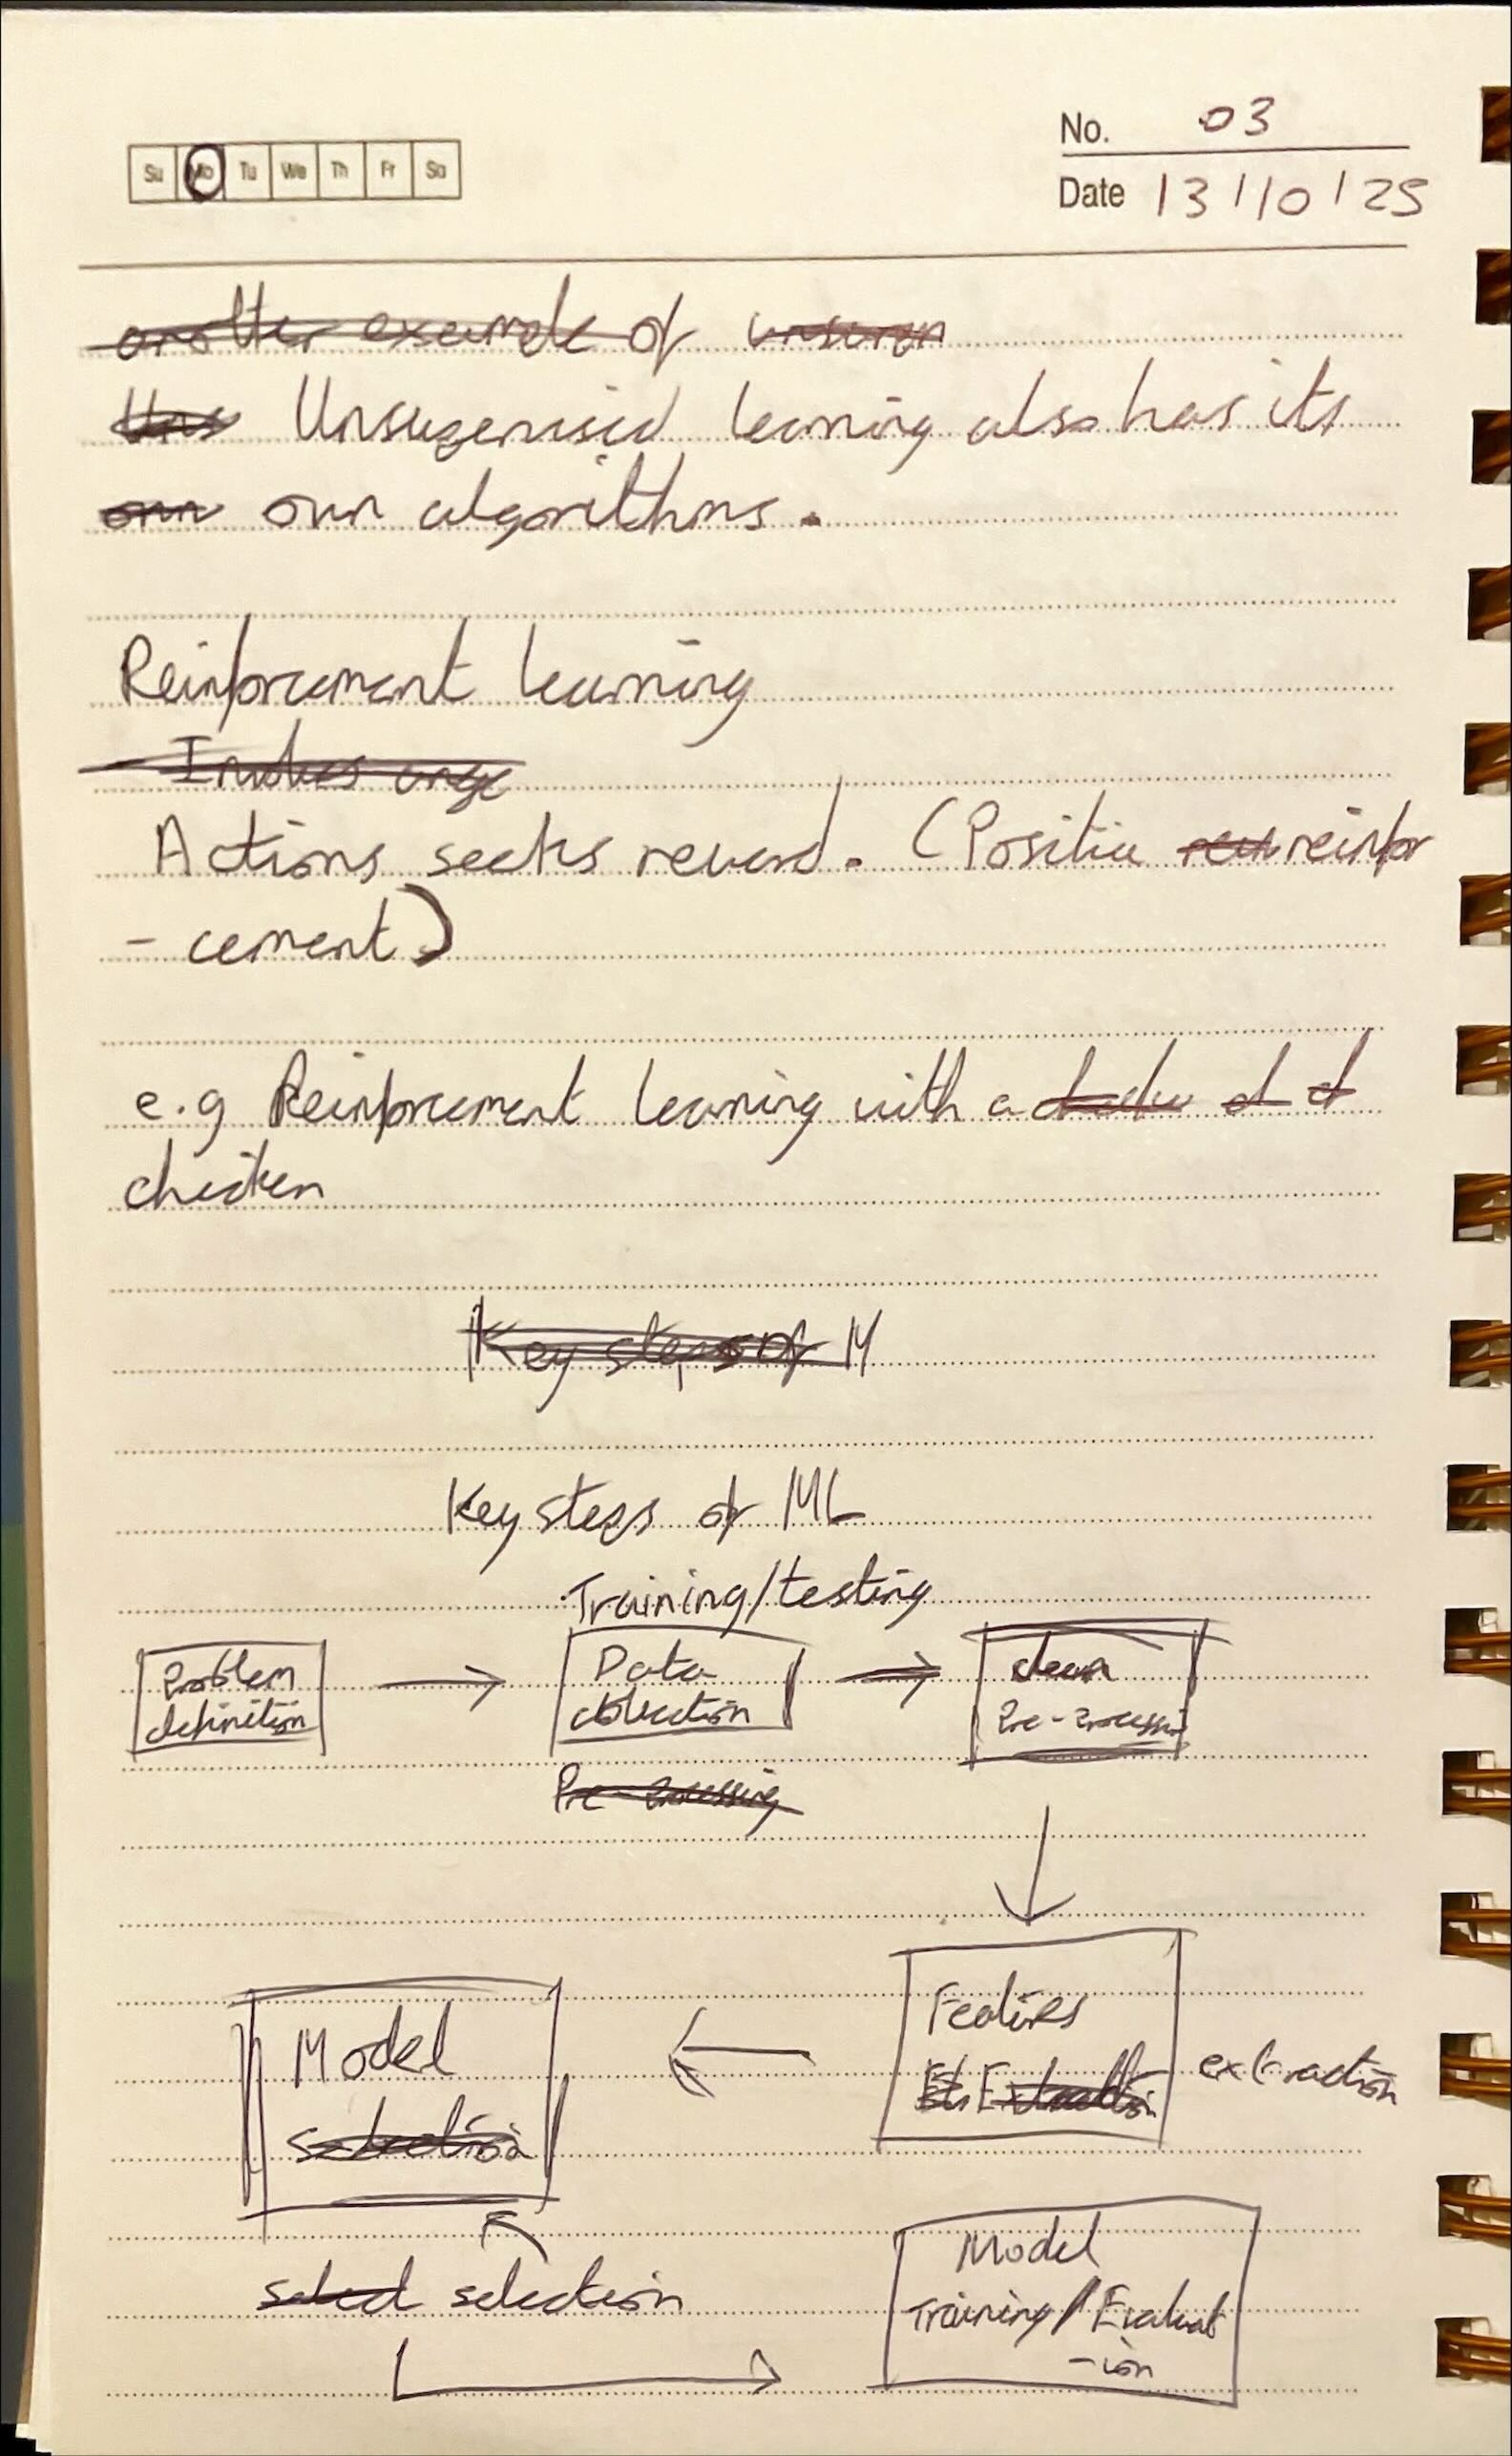 No. 03
Su Mo Tu We Th Fr Sa
Date 13/10/25
another example of
Unsupervised learning also has its
own own algorithms.
Reinforcement learning
Actions seeks reward. (Positive reinfor
- cement)
e.g Reinforcement learning with a
chicken
Key steps of M
Key steps of ML
Training/testing
Problem
definition
Data
collection
clean
Pre-Processi
Pre-Processing
Features
Extraction
extraction
Model
selection
select selection
Model
Training/Evaluat
-ion